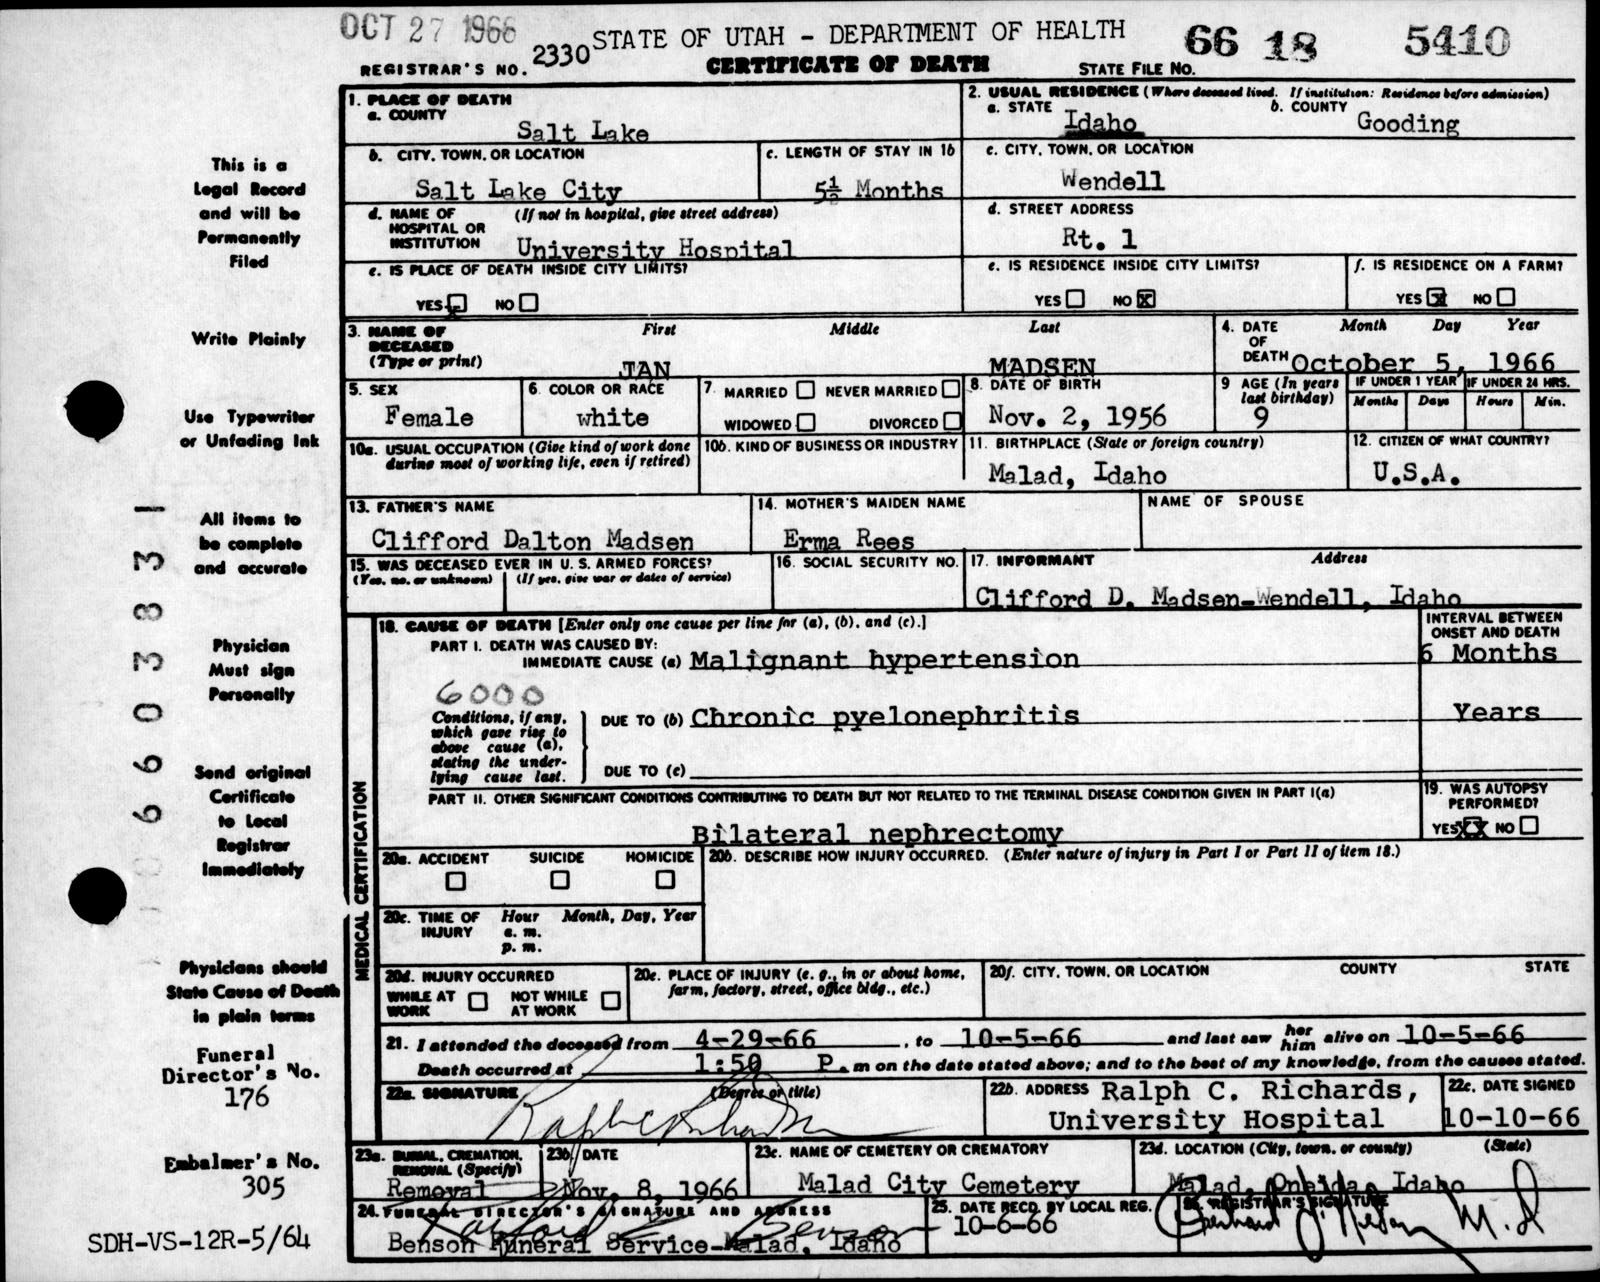 OCT 27 1966
STATE OF UTAH - DEPARTMENT OF HEALTH
66 18 5410
REGISTRAR'S NO. 2330
CERTIFICATE OF DEATH
STATE FILE NO.
1. PLACE OF DEATH
a. COUNTY
Salt Lake
2. USUAL RESIDENCE (Where deceased lived. If institution: Residence before admission)
a. STATE
Idaho
b. COUNTY
Gooding
b. CITY, TOWN, OR LOCATION
Salt Lake City
c. LENGTH OF STAY IN 1b
5½ Months
c. CITY, TOWN, OR LOCATION
Wendell
d. NAME OF HOSPITAL OR INSTITUTION
(If not in hospital, give street address)
University Hospital
d. STREET ADDRESS
Rt. 1
e. IS PLACE OF DEATH INSIDE CITY LIMITS?
YES x NO
e. IS RESIDENCE INSIDE CITY LIMITS?
YES NO x
f. IS RESIDENCE ON A FARM?
YES x NO
3. NAME OF DECEASED
(Type or print)
First Middle Last
JAN MADSEN
4. DATE OF DEATH
Month Day Year
October 5, 1966
5. SEX
Female
6. COLOR OR RACE
white
7. MARRIED NEVER MARRIED
WIDOWED DIVORCED
8. DATE OF BIRTH
Nov. 2, 1956
9 AGE (In years last birthday)
9
IF UNDER 1 YEAR
Months Days
IF UNDER 24 HRS.
Hours Min.
10a. USUAL OCCUPATION (Give kind of work done during most of working life, even if retired)
10b. KIND OF BUSINESS OR INDUSTRY
11. BIRTHPLACE (State or foreign country)
Malad, Idaho
12. CITIZEN OF WHAT COUNTRY?
U.S.A.
13. FATHER'S NAME
Clifford Dalton Madsen
14. MOTHER'S MAIDEN NAME
Erma Rees
NAME OF SPOUSE
15. WAS DECEASED EVER IN U. S. ARMED FORCES?
(Yes, no, or unknown) (If yes, give war or dates of service)
16. SOCIAL SECURITY NO.
17. INFORMANT Address
Clifford D. Madsen-Wendell, Idaho
MEDICAL CERTIFICATION
18. CAUSE OF DEATH [Enter only one cause per line for (a), (b), and (c).]
INTERVAL BETWEEN ONSET AND DEATH
PART I. DEATH WAS CAUSED BY:
IMMEDIATE CAUSE (a) Malignant hypertension
6 Months
6000
Conditions, if any, which gave rise to above cause (a), stating the underlying cause last.
DUE TO (b) Chronic pyelonephritis
Years
DUE TO (c)
PART II. OTHER SIGNIFICANT CONDITIONS CONTRIBUTING TO DEATH BUT NOT RELATED TO THE TERMINAL DISEASE CONDITION GIVEN IN PART I(a)
Bilateral nephrectomy
19. WAS AUTOPSY PERFORMED?
YES XX NO
20a. ACCIDENT SUICIDE HOMICIDE
20b. DESCRIBE HOW INJURY OCCURRED. (Enter nature of injury in Part I or Part II of item 18.)
20c. TIME OF INJURY
Hour Month, Day, Year
a. m.
p. m.
20d. INJURY OCCURRED
WHILE AT WORK NOT WHILE AT WORK
20e. PLACE OF INJURY (e. g., in or about home, farm, factory, street, office bldg., etc.)
20f. CITY, TOWN, OR LOCATION COUNTY STATE
21. I attended the deceased from 4-29-66, to 10-5-66 and last saw her him alive on 10-5-66
Death occurred at 1:50 P. m on the date stated above; and to the best of my knowledge, from the causes stated.
22a. SIGNATURE (Degree or title)
Ralph C. Richards
22b. ADDRESS Ralph C. Richards,
University Hospital
22c. DATE SIGNED
10-10-66
23a. BURIAL, CREMATION, REMOVAL (Specify)
Removal
23b DATE
Nov. 8, 1966
23c. NAME OF CEMETERY OR CREMATORY
Malad City Cemetery
23d. LOCATION (City, town, or county) (State)
Malad, Oneida, Idaho
24. FUNERAL DIRECTOR'S SIGNATURE AND ADDRESS
Benson
Benson Funeral Service-Malad, Idaho
25. DATE RECD. BY LOCAL REG.
10-6-66
REGISTRAR'S SIGNATURE
M.D
This is a
Legal Record
and will be
Permanently
Filed
Write Plainly
Use Typewriter
or Unfading Ink
All items to
be complete
and accurate
Physician
Must sign
Personally
Send original
Certificate
to Local
Registrar
Immediately
Physicians should
State Cause of Death
in plain terms
Funeral
Director's No.
176
Embalmer's No.
305
SDH-VS-12R-5/64
660383 1